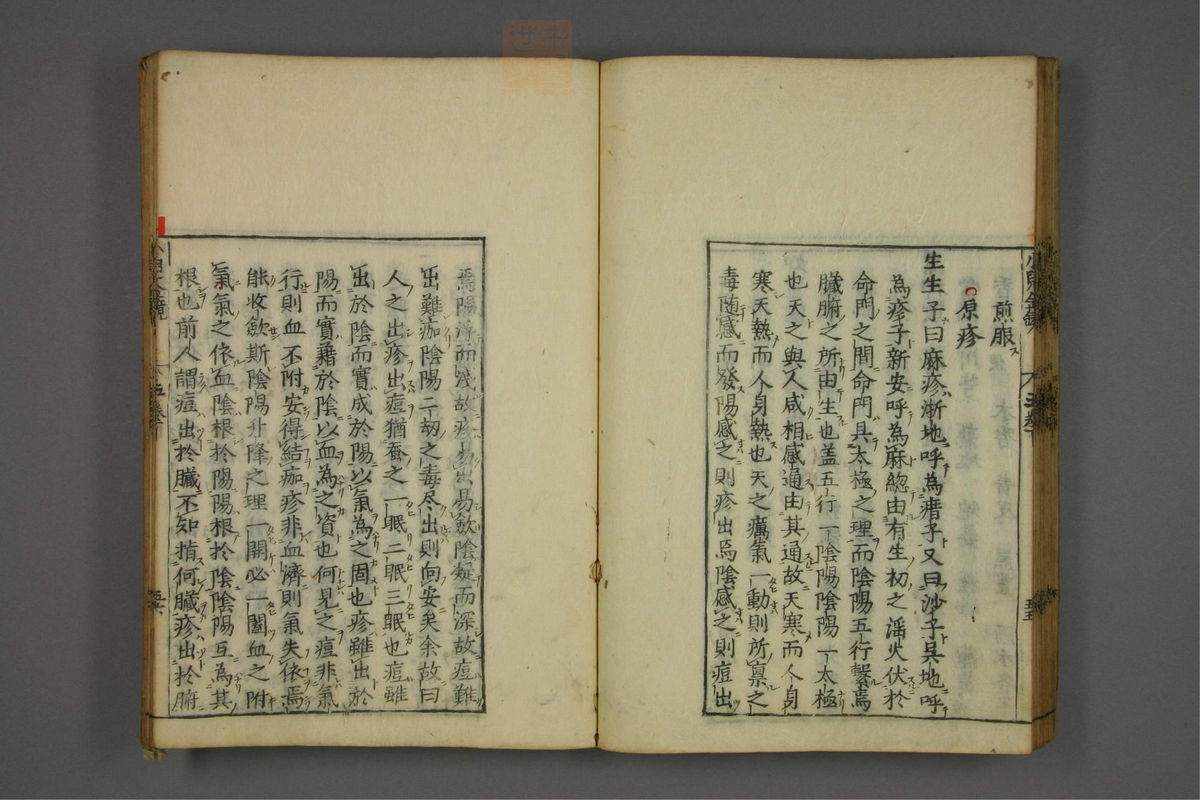 煎服
原疹
生生子曰麻疹浙地呼為瘄子又曰沙子吳地呼
為疹子新安呼為麻緫由有生初之滛火伏於
命門之間命門具太極之理而陰陽五行繫焉
臟腑之所由生也盖五行一陰陽陰陽一太極
也天之與人咸相感通由其通故天寒而人身
寒天熱而人身熱也天之癘氣一動則所禀之
毒随感而發陽感之則疹出焉陰感之則痘出
焉陽浮而浅故疹易出易歛陰凝而深故痘難
出難痂陰陽二刼之毒尽出則向安矣余故曰
人之出疹出痘猶蚕之一眠二眠三眠也痘雖
出於陰而實成於陽以氣為之固也疹雖出於
陽而實藉於陰以血為之資也何見之痘非氣
行則血不附安得結痂疹非血濟則氣失依焉
能收歛斯陰陽升降之理一開必一闔血之附
氣氣之依血陰根扵陽陽根扵陰陰陽互為其
根也前人謂痘出扵臟不知指何臟疹出扵腑